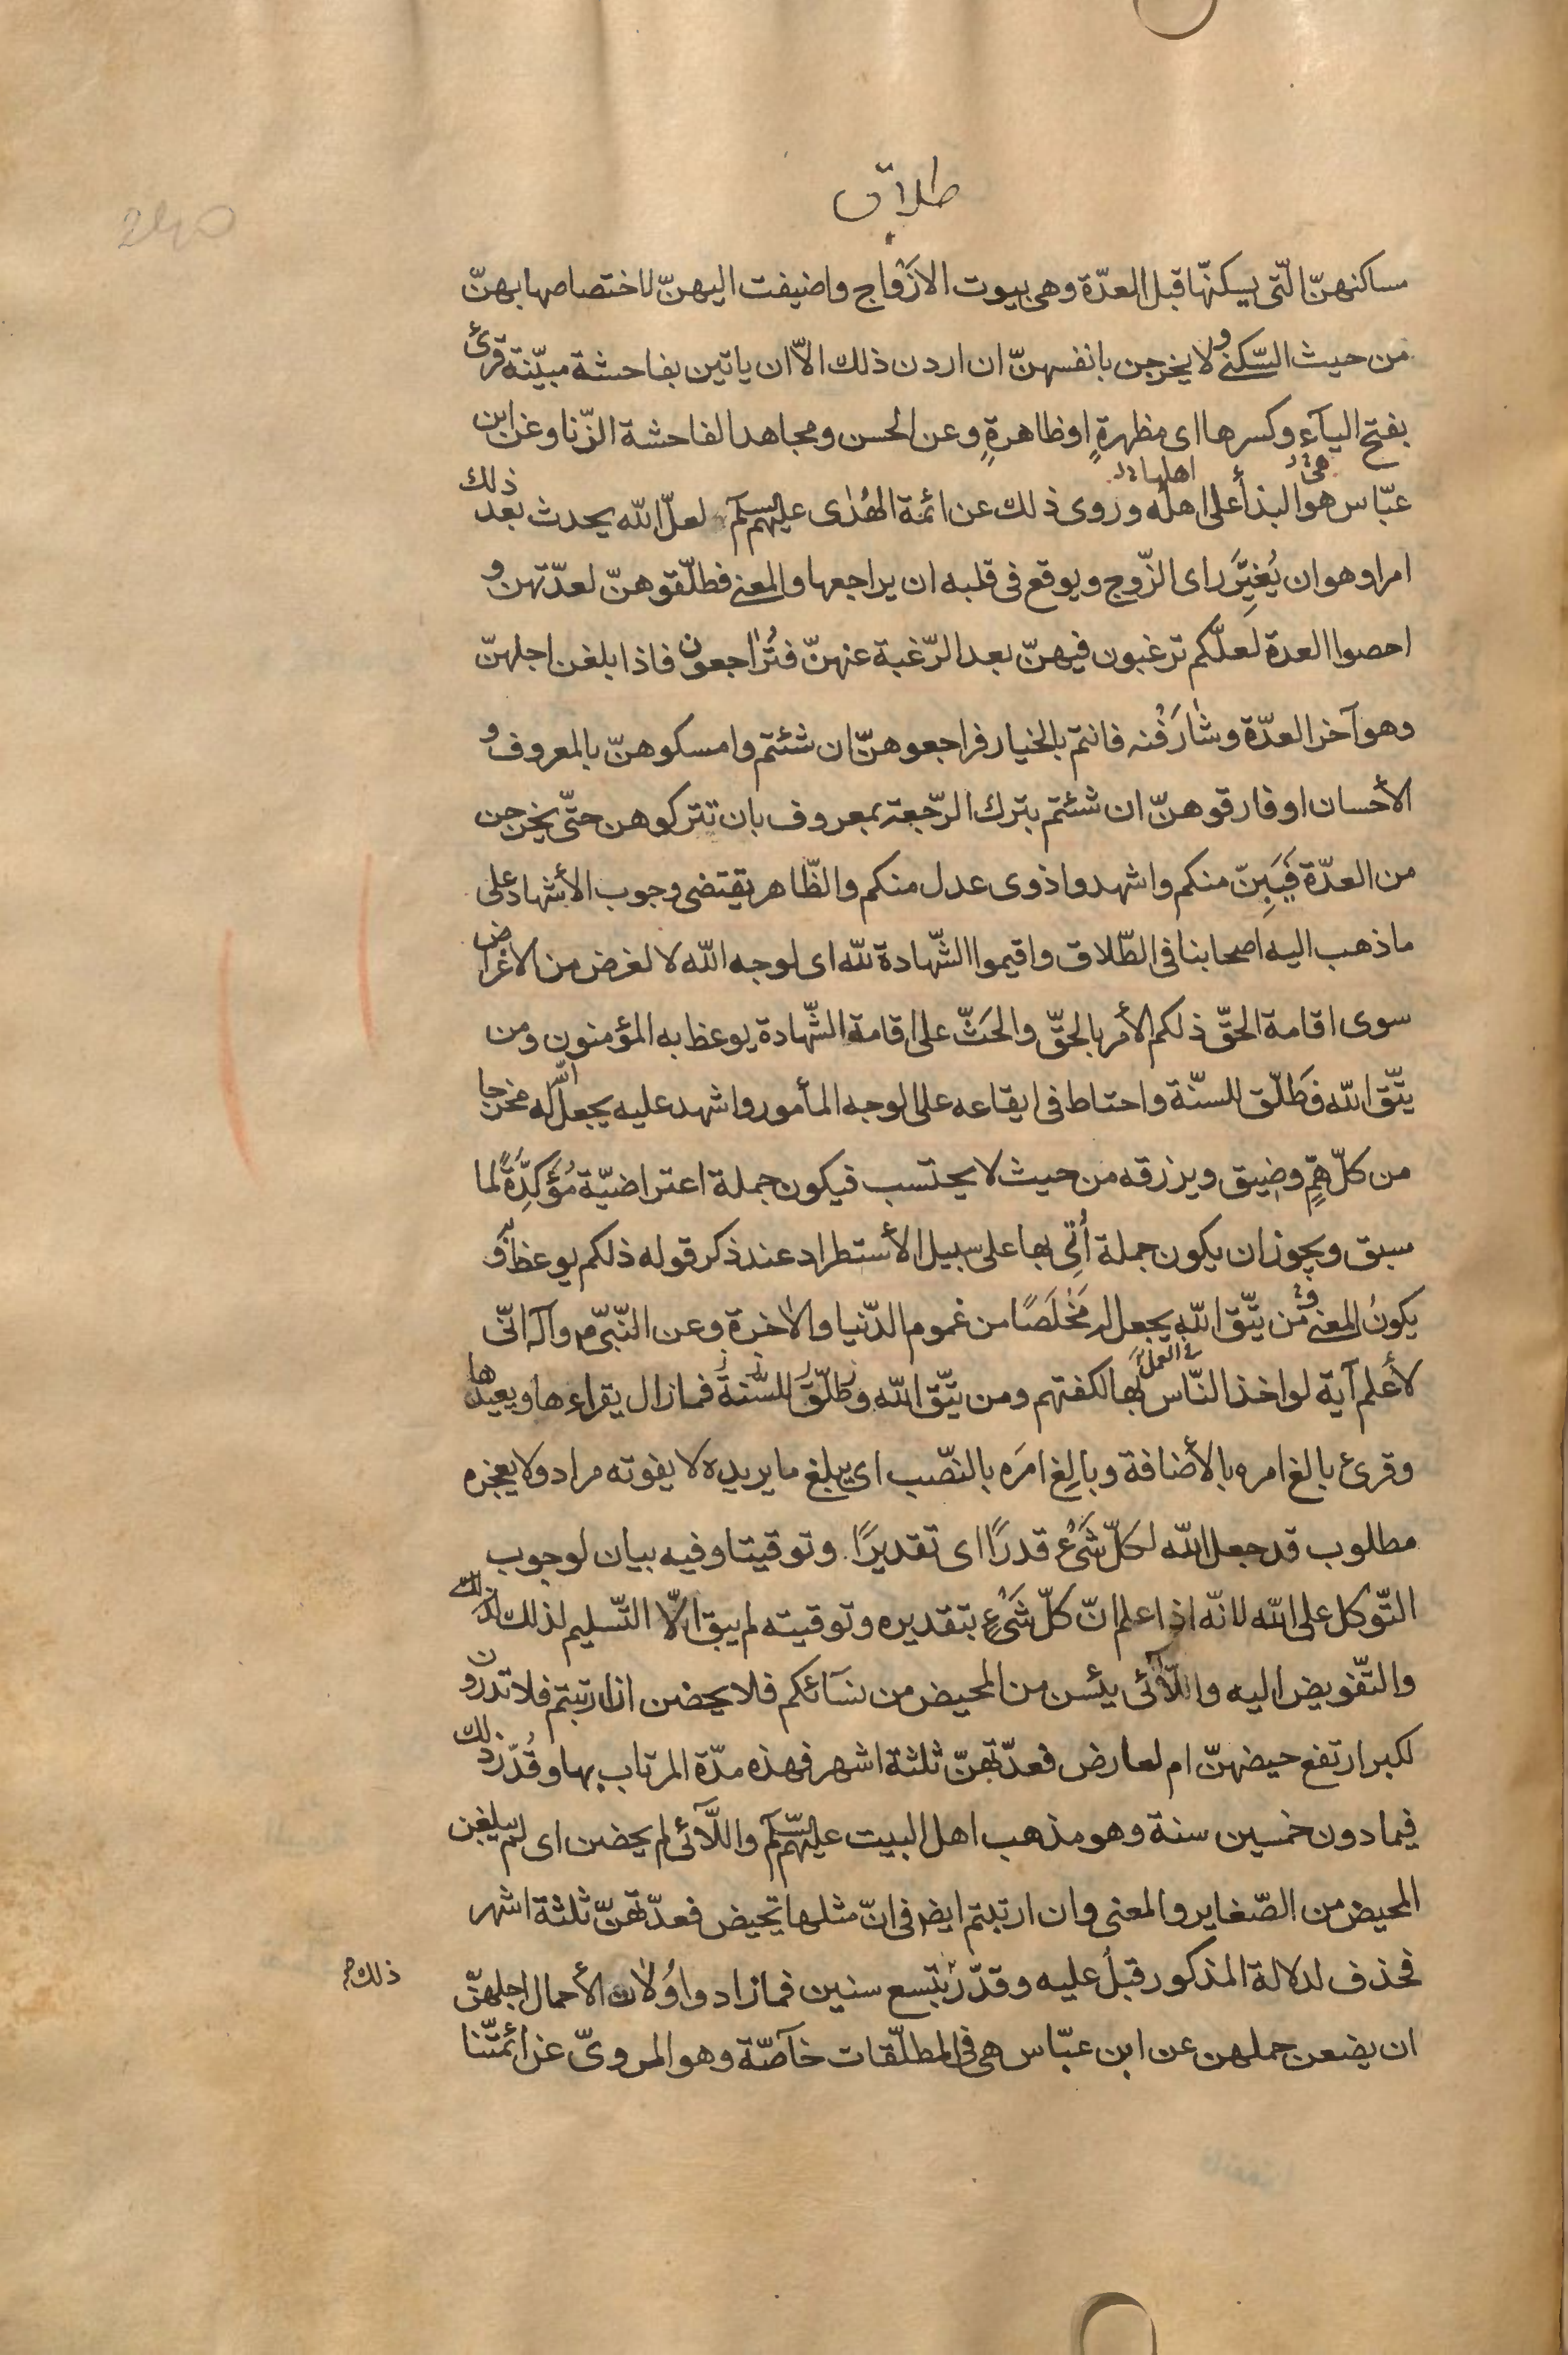 طلاق
مساكنهنّ الّتى يسكنّها قبل العدّة وهى بيوت الازْواج واضيفت اليهنّ لاختصاصها بهنّ
من حيث السّكنى ولا يخرجن بانفسهنّ ان اردن ذلك الاّ ان ياتين بفاحشة مبيّنة قرئ
بفتح اليآء وكسرها اى مظهرةٍ او ظاهرةٍ وعن الحسن ومجاهد الفاحشة الزّنا وعن ابن
عبّاس هو البذأ على اهله وروى ذلك عن ائمة الهُدٰى عليهم السلم لعلّ الله يحدث بعد ذلك
هى
اهلها
امرا وهو ان يُغيِّرَ راى الزّوج ويوقع فى قلبه ان يراجعها والمعنى فطلّقوهنّ لعدّتهن و
احصوا العدة لعلّكم ترغبون فيهنّ بعد الرّغبة عنهنّ فتُرٰاجعون فاذا بلغن اجلهنّ
وهو آخر العدّة وشٰارَفْنه فانتم بالخيار فراجعوهنّ ان شئتم وامسكوهنّ بالمعروف و
الأحسان او فارقوهنّ ان شئتم بترك الرّجعة بمعروف بان تتركوهن حتّى يخرجن
من العدّة فَيَبِنّ منكم واشهدوا ذوى عدل منكم والظّاهر يقتضى وجوب الأشهاد على
ما ذهب اليه اصحابنا فى الطّلاق واقيموا الشّهادة لله اى لوجه الله لا لغرض من الاغراض
سوى اقامة الحقّ ذلكم الأمر بالحقّ والحَثّ على اقامة الشّهادة يوعظ به المؤمنون ومن
يتّق الله فَطَلّق للسنّة واحتاط فى ايقاعه على الوجه المأمور واشهد عليه يجعل الله له مخرجا
من كلّ همٍّ وضيق ويرزقه من حيث لا يحتسب فيكون جملة اعتراضيّة مُؤَكِّدَةً لما
سبق ويجوز ان يكون جملة أُتِى بها على سبيل الأستطراد عند ذكر قوله ذلكم يوعظ به و
يكونُ المعنى ومَن يتّق الله يجعل له مَخْلَصًا من غموم الدّنيا والاٰخرة وعن النّبىّ ص وآله انّى
لأعلم آية لو اخذ النّاس بها لكفتهم ومن يتّق الله وطلّق للسّنة فمازال يقراءها ويعيدها
فى العمل
وقرئ بالغ امره بالأضافة وبالِغ امَره بالنّصب اى يبلغ ما يريده لا يفوته مراد ولا يعجزه
مطلوب قد جعل الله لكلّ شَىْءٍ قدرًا اى تقديرًا وتوقيتا وفيه بيان لوجوب
التّوكل على الله لانّه اذا علم انّ كلّ شَىْءٍ بتقديره وتوقيته لم يبق الاّ التّسليم لذلك
والتّفويض اليه واللّآئى يئسن من المحيض من نسآئكم فلا يحضن ان ارتبتم فلا تدرون
لكبر ارتفع حيضهنّ ام لعارض فعدّتهنّ ثلثة اشهر فهذه مدّة المرتاب بها وقُدّر ذلك
فيما دون خمسين سنة وهو مذهب اهل البيت عليهم السّلم واللّآئى لم يحضن اى لم يبلغن
المحيض من الصّغاير والمعنى وان ارتبتم ايض فى انّ مثلها تحيض فعدّتهنّ ثلثة اشهر
فحذف لدلالة المذكور قبلُ عليه وقدّر بتسع سنين فمازاد واُولات الأحمال اجلهنّ
ذلك
ان يضعن حملهن عن ابن عبّاس هى فى المطلّقات خآصّة وهو المروىّ عن ائمّتنا